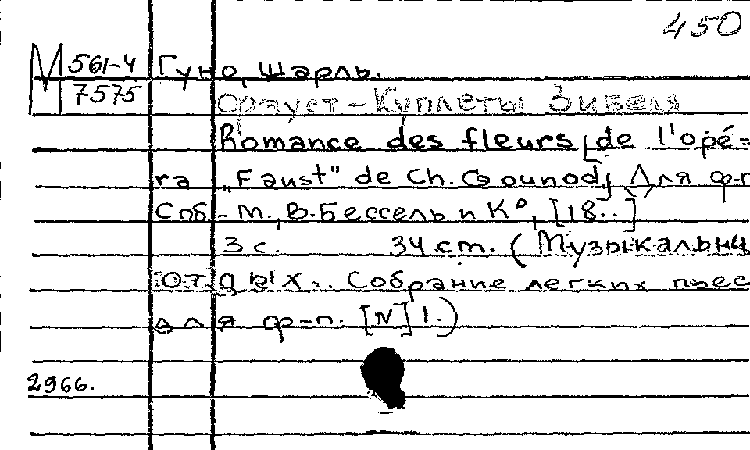 450
М 561-4
7575
Гуно, Шарль.
Фауст - Куплеты Зибеля
Romance des fleurs [de l'opé=
ra "Faust" de Ch. Gounod] Для ф-п
Спб.-М., В. Бессель и К°, [18..]
3 с. 34 cm. (Музыкальны
отдых. Собрание легких пьес
для ф-п. [N] 1.)
2966.